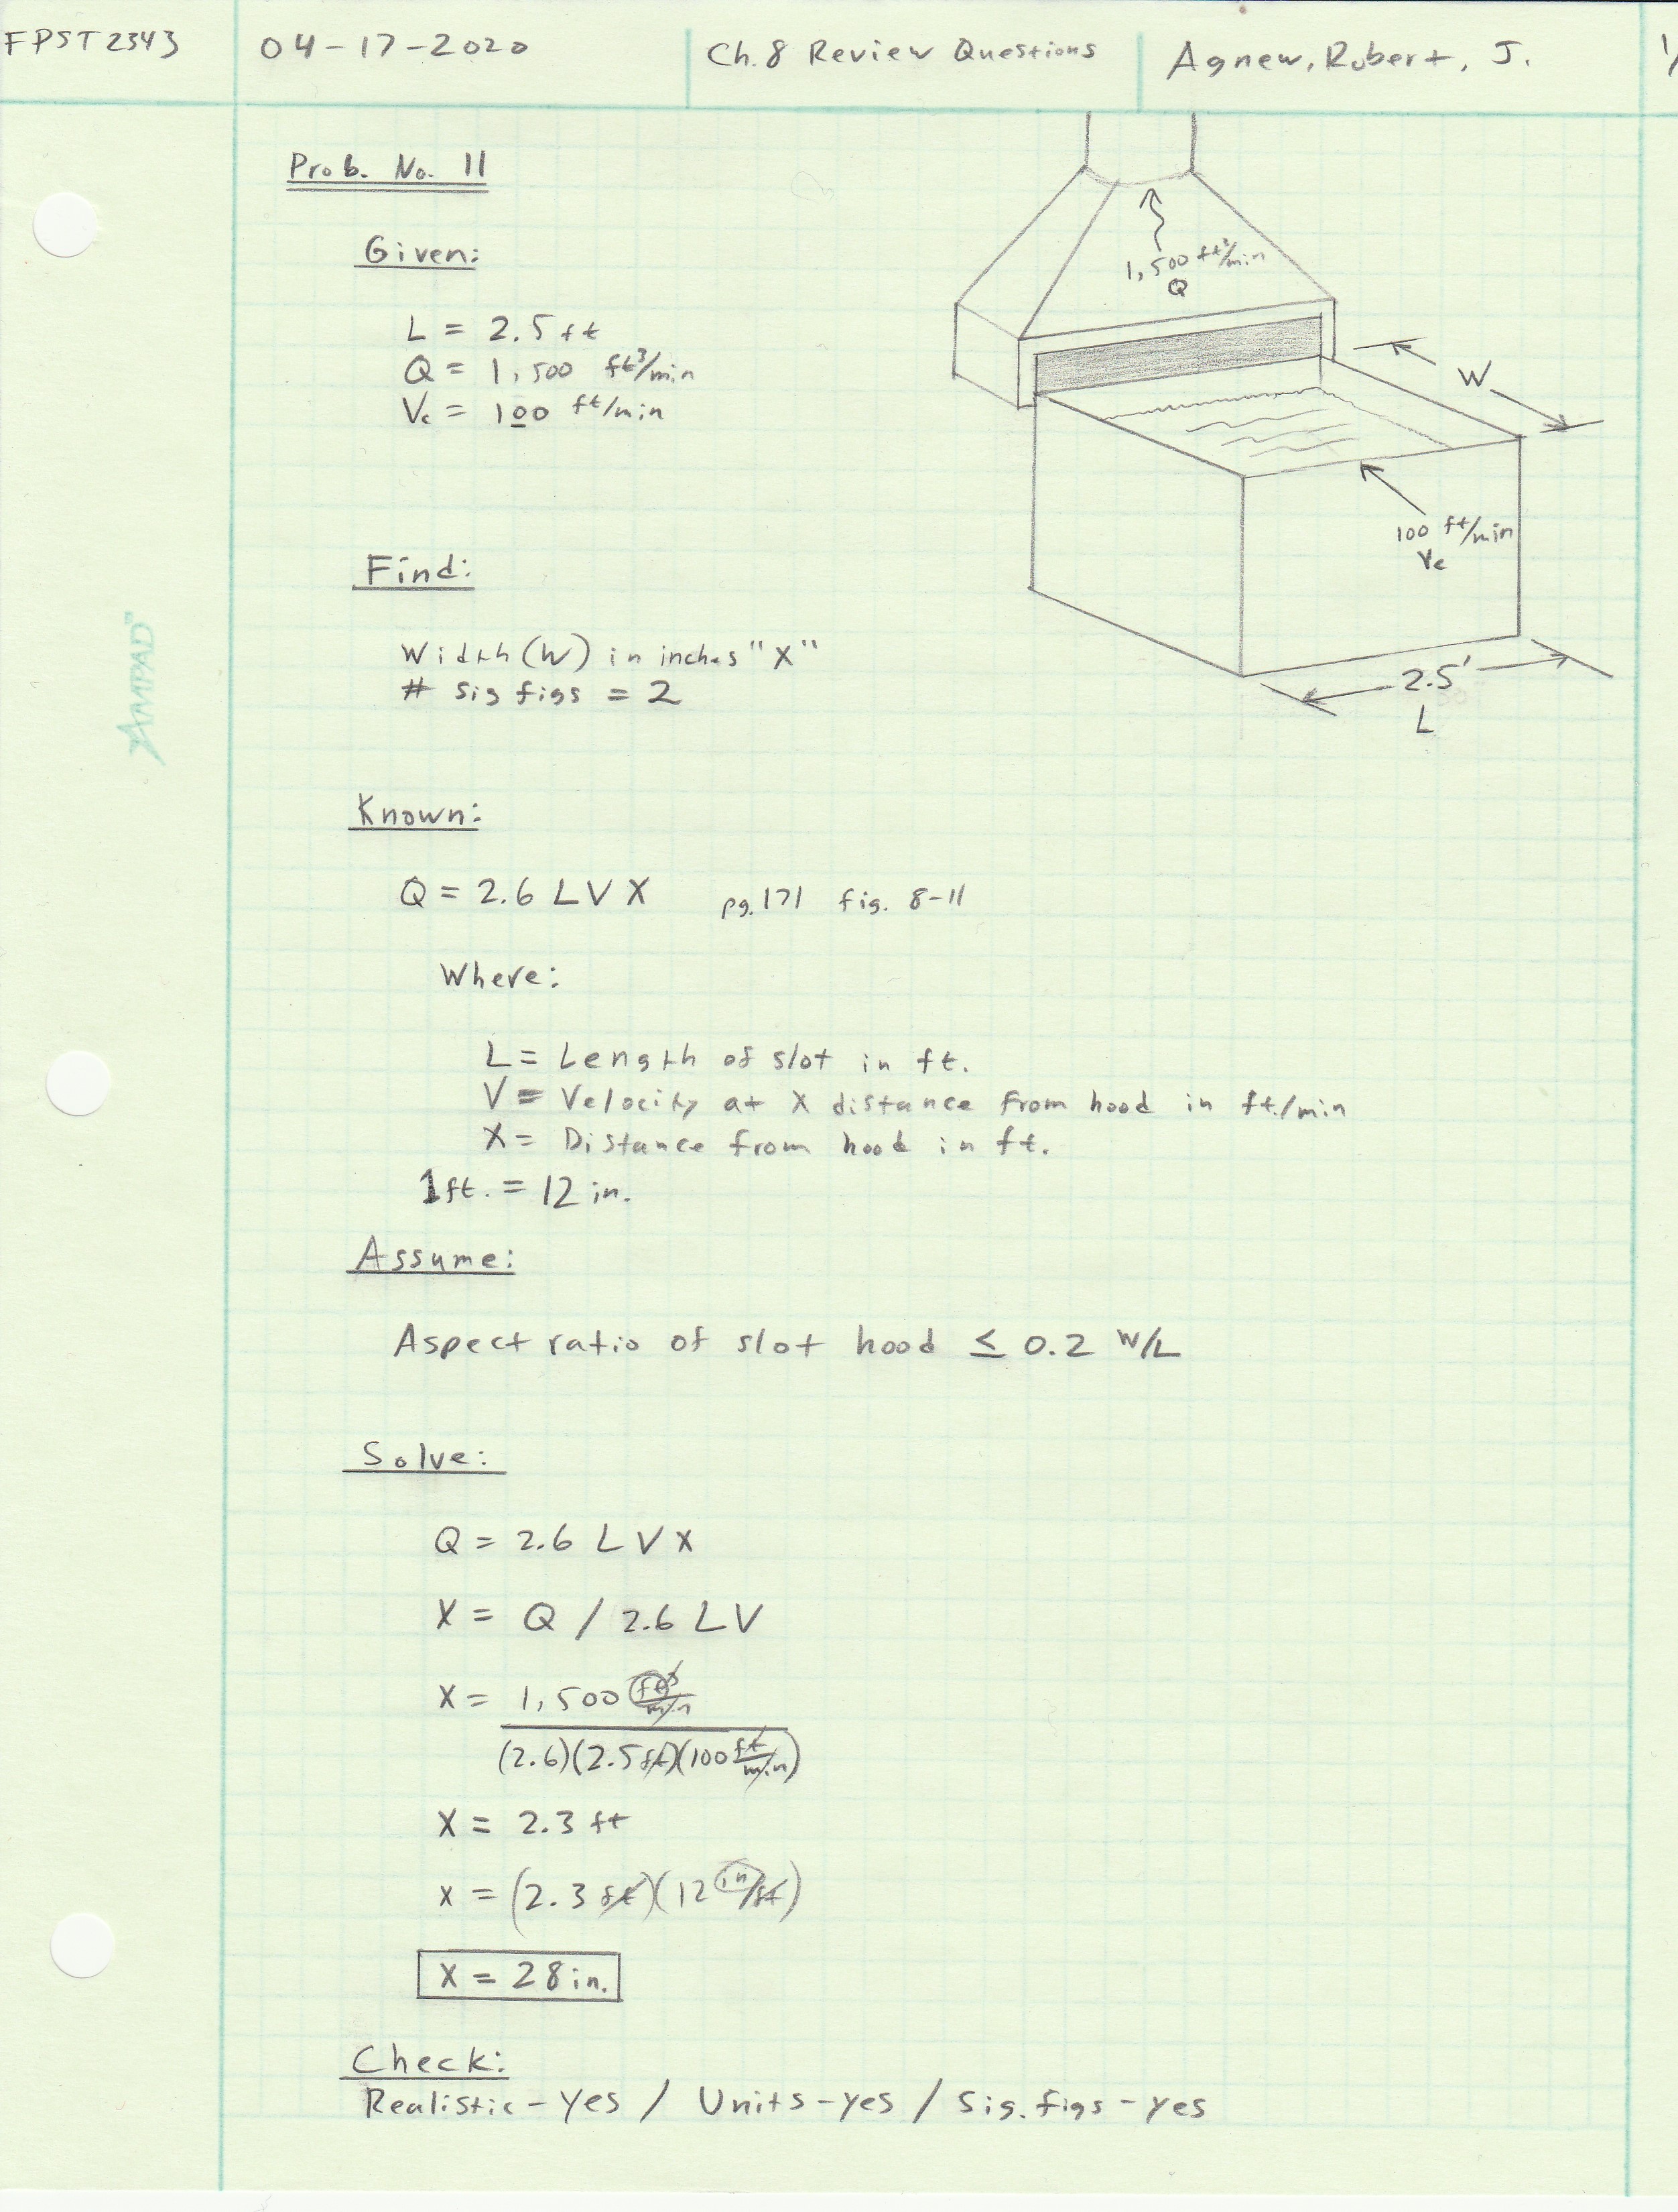 FPST2343
04-17-2020
Ch.8 Review Questions
Agnew, Robert, J.
1/
Prob. No. 11
Given:
L = 2.5 ft
Q = 1,500 ft³/min
Vc = 100 ft/min
1,500 ft³/min
Q
W
100 ft/min
Vc
2.5'
L
Find:
Width (W) in inches "X"
# sig figs = 2
AMPAD™
Known:
Q = 2.6 LVX pg.171 fig. 8-11
Where:
L = Length of slot in ft.
V = Velocity at X distance from hood in ft./min
X = Distance from hood in ft.
1ft. = 12 in.
Assume:
Aspect ratio of slot hood ≤ 0.2 W/L
Solve:
Q = 2.6 LVX
X = Q / 2.6 LV
X = 1,500 ft³/min
(2.6)(2.5 ft)(100 ft/min)
X = 2.3 ft
x = (2.3 ft)(12 in/ft)
X = 28 in.
Check:
Realistic - Yes / Units - yes / Sig. figs - yes